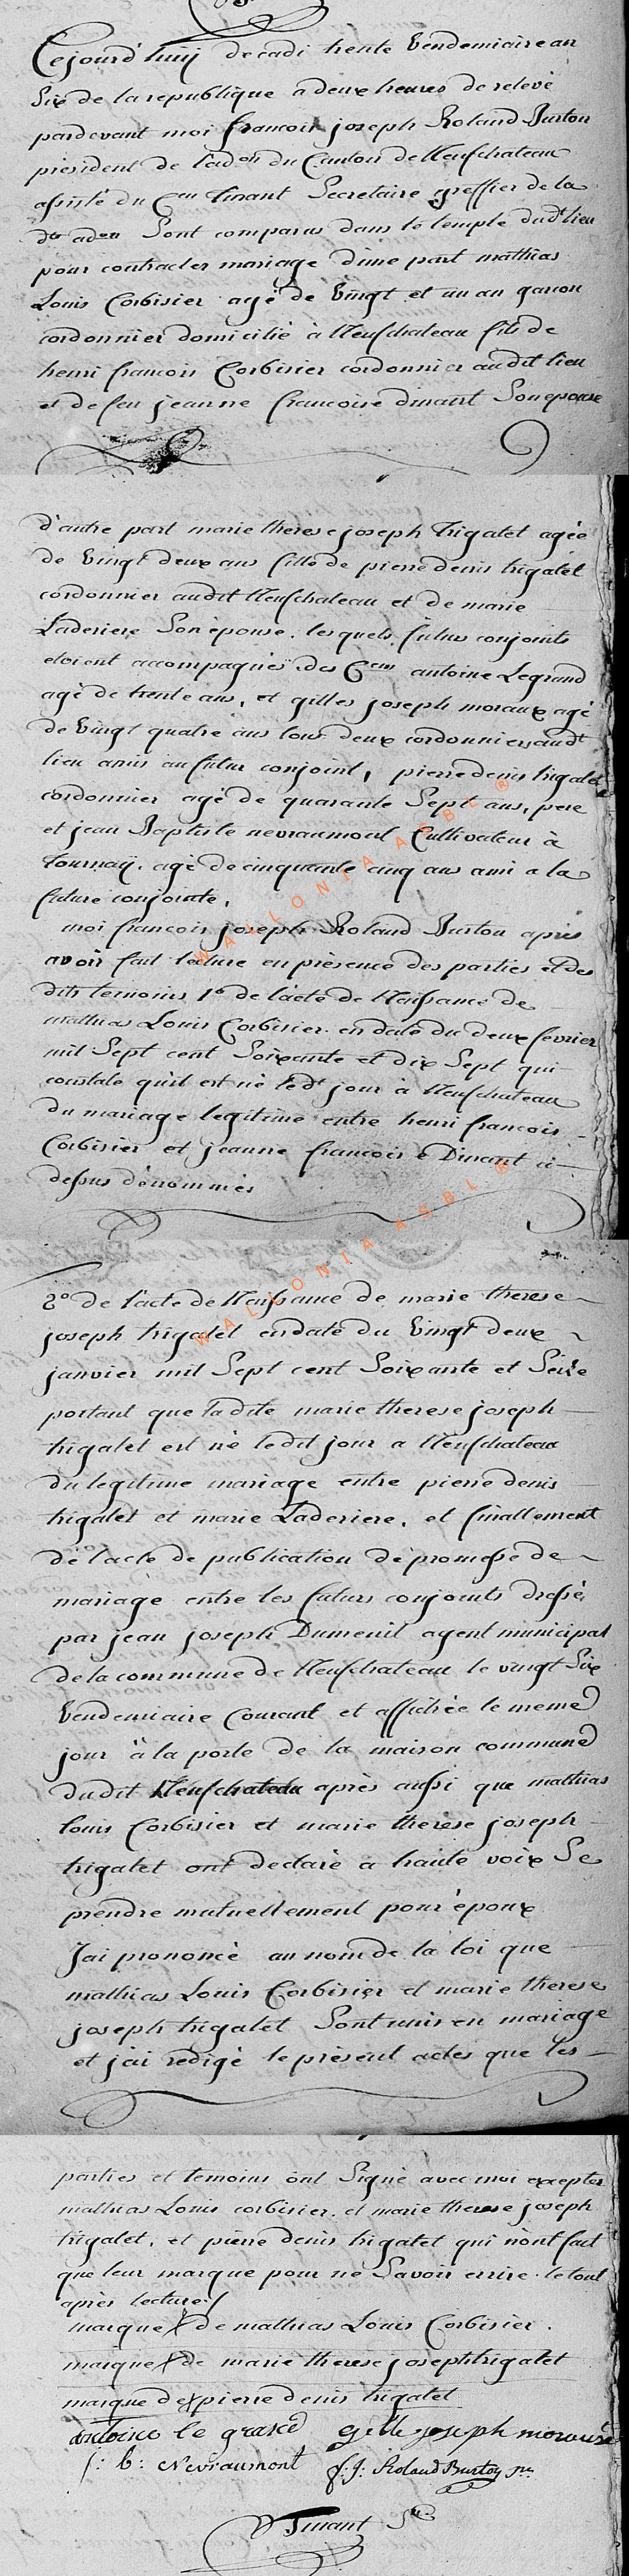 Cejourd'huy decadi trente Vendemiaire an
Six de la republique a deux heures de relevé
pardevant moi francois joseph Roland Burton
president de l'adon du Canton de Neufchateau
assisté du Cen Tinant Secretaire greffier de la
dte adon Sont comparus dans le temple dudt lieu
pour contracter mariage d'une part mathias
Louis Corbisier agé de Vingt et un an garcon
cordonnier domicilié à Neufchateau fils de
henri francois Corbisier cordonnier audit lieu
et de feu jeanne francoise dinant Son epouse
d'autre part marie therese joseph trigalet agée
de Vingt deux ans fille de pierre denis trigalet
cordonnier audit Neufchateau et de marie
Laderiere Son épouse. lesquels futurs conjoints
etoient accompagnés des Cens antoine Legrand
agé de trente ans, et gilles joseph moraux agé
de Vingt quatre ans tous deux cordonniers audt
lieu amis au futur conjoint, pierre denis trigalet
cordonnier agé de quarante Sept ans, pere
et jean Baptiste nevraumont Cultivateur à
tournaÿ. agé de cinquante cinq ans ami a la
future conjointe,
moi francois joseph Roland Burton après
avoir fait lecture en présence des parties et des
dits temoins 1o de l'acte de Naissance de
mathias Louis Corbisier. en date du deux fevrier
mil Sept cent Soixante et dix Sept qui
constate qu'il est né ledt jour à Neufchateau
du mariage legitime entre henri francois
Corbisier et jeanne francoise Dinant ci
dessus dénommés
WALLONIA ASBL ®
2o de l'acte de Naissance de marie therese
joseph trigalet en date du Vingt deux
janvier mil Sept cent Soixante et Seize
portant que ladite marie therese joseph
trigalet est né ledit jour a Neufchateau
du legitime mariage entre pierre denis
trigalet et marie Laderiere, et finallement
de l'acte de publication de promesse de
mariage entre les futurs conjoints dressé
par jean joseph Dumenil agent municipal
de la commune de Neufchateau le vingt Six
Vendemiaire Courant et affichée le meme
jour à la porte de la maison commune
dudit Neufchateau après aussi que mathias
louis Corbisier et marie thérèse joseph
trigalet ont declaré a haute voix Se
prendre mutuellement pour époux
J'ai prononcé au nom de la loi que
mathias Louis Corbisier et marie therese
joseph trigalet Sont unis en mariage
et j'ai redigé le présent actes que les
WALLONIA ASBL ®
parties et temoins ont Signé avec moi excepter
mathias Louis corbisier. et marie therese joseph
trigalet, et pierre denis trigalet qui n'ont fait
que leur marque pour ne Savoir ecrire. le tout
après lecture
marque X de mathias Louis Corbisier.
marque X de marie therese joseph trigalet
marque de X pierre denis trigalet
antoine le grand gille joseph moraux
j: b: Nevraumont f: j: Roland Burton
Tinant